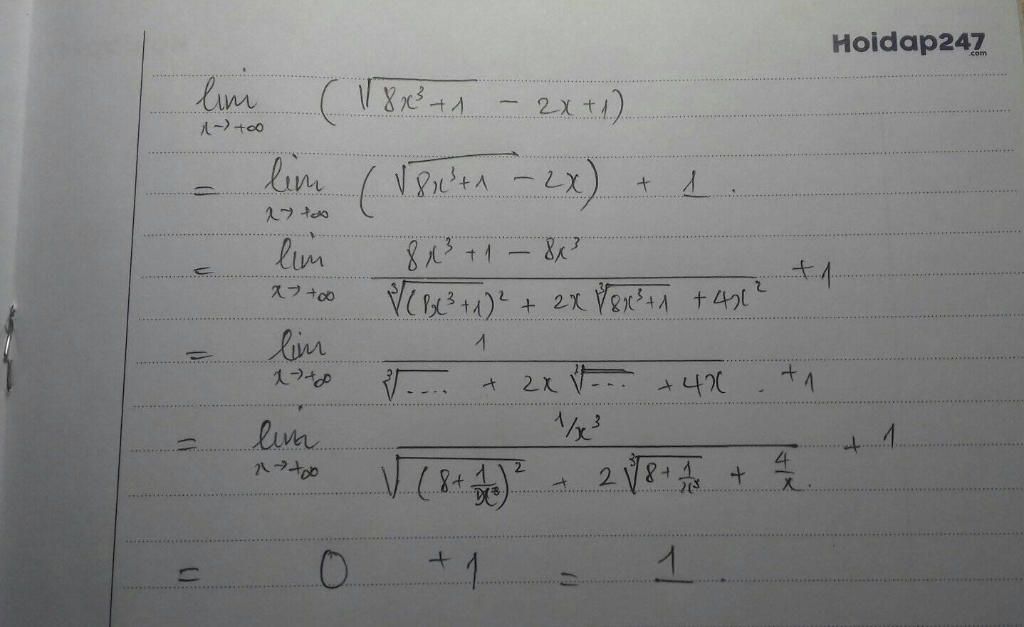 Hoidap247
.com
lim x→+∞ (√8x³+1 − 2x+1)
= lim x→+∞ (√8x³+1 − 2x) + 1.
= lim x→+∞ 8x³+1 − 8x³ / ∛(8x³+1)² + 2x ∛8x³+1 + 4x² + 1
= lim x→+∞ 1 / ∛.... + 2x ∛... + 4x . + 1
= lim x→+∞ 1/x³ / √(8+1/x³)² + 2∛8+1/x³ + 4/x. + 1
= 0 + 1 = 1.